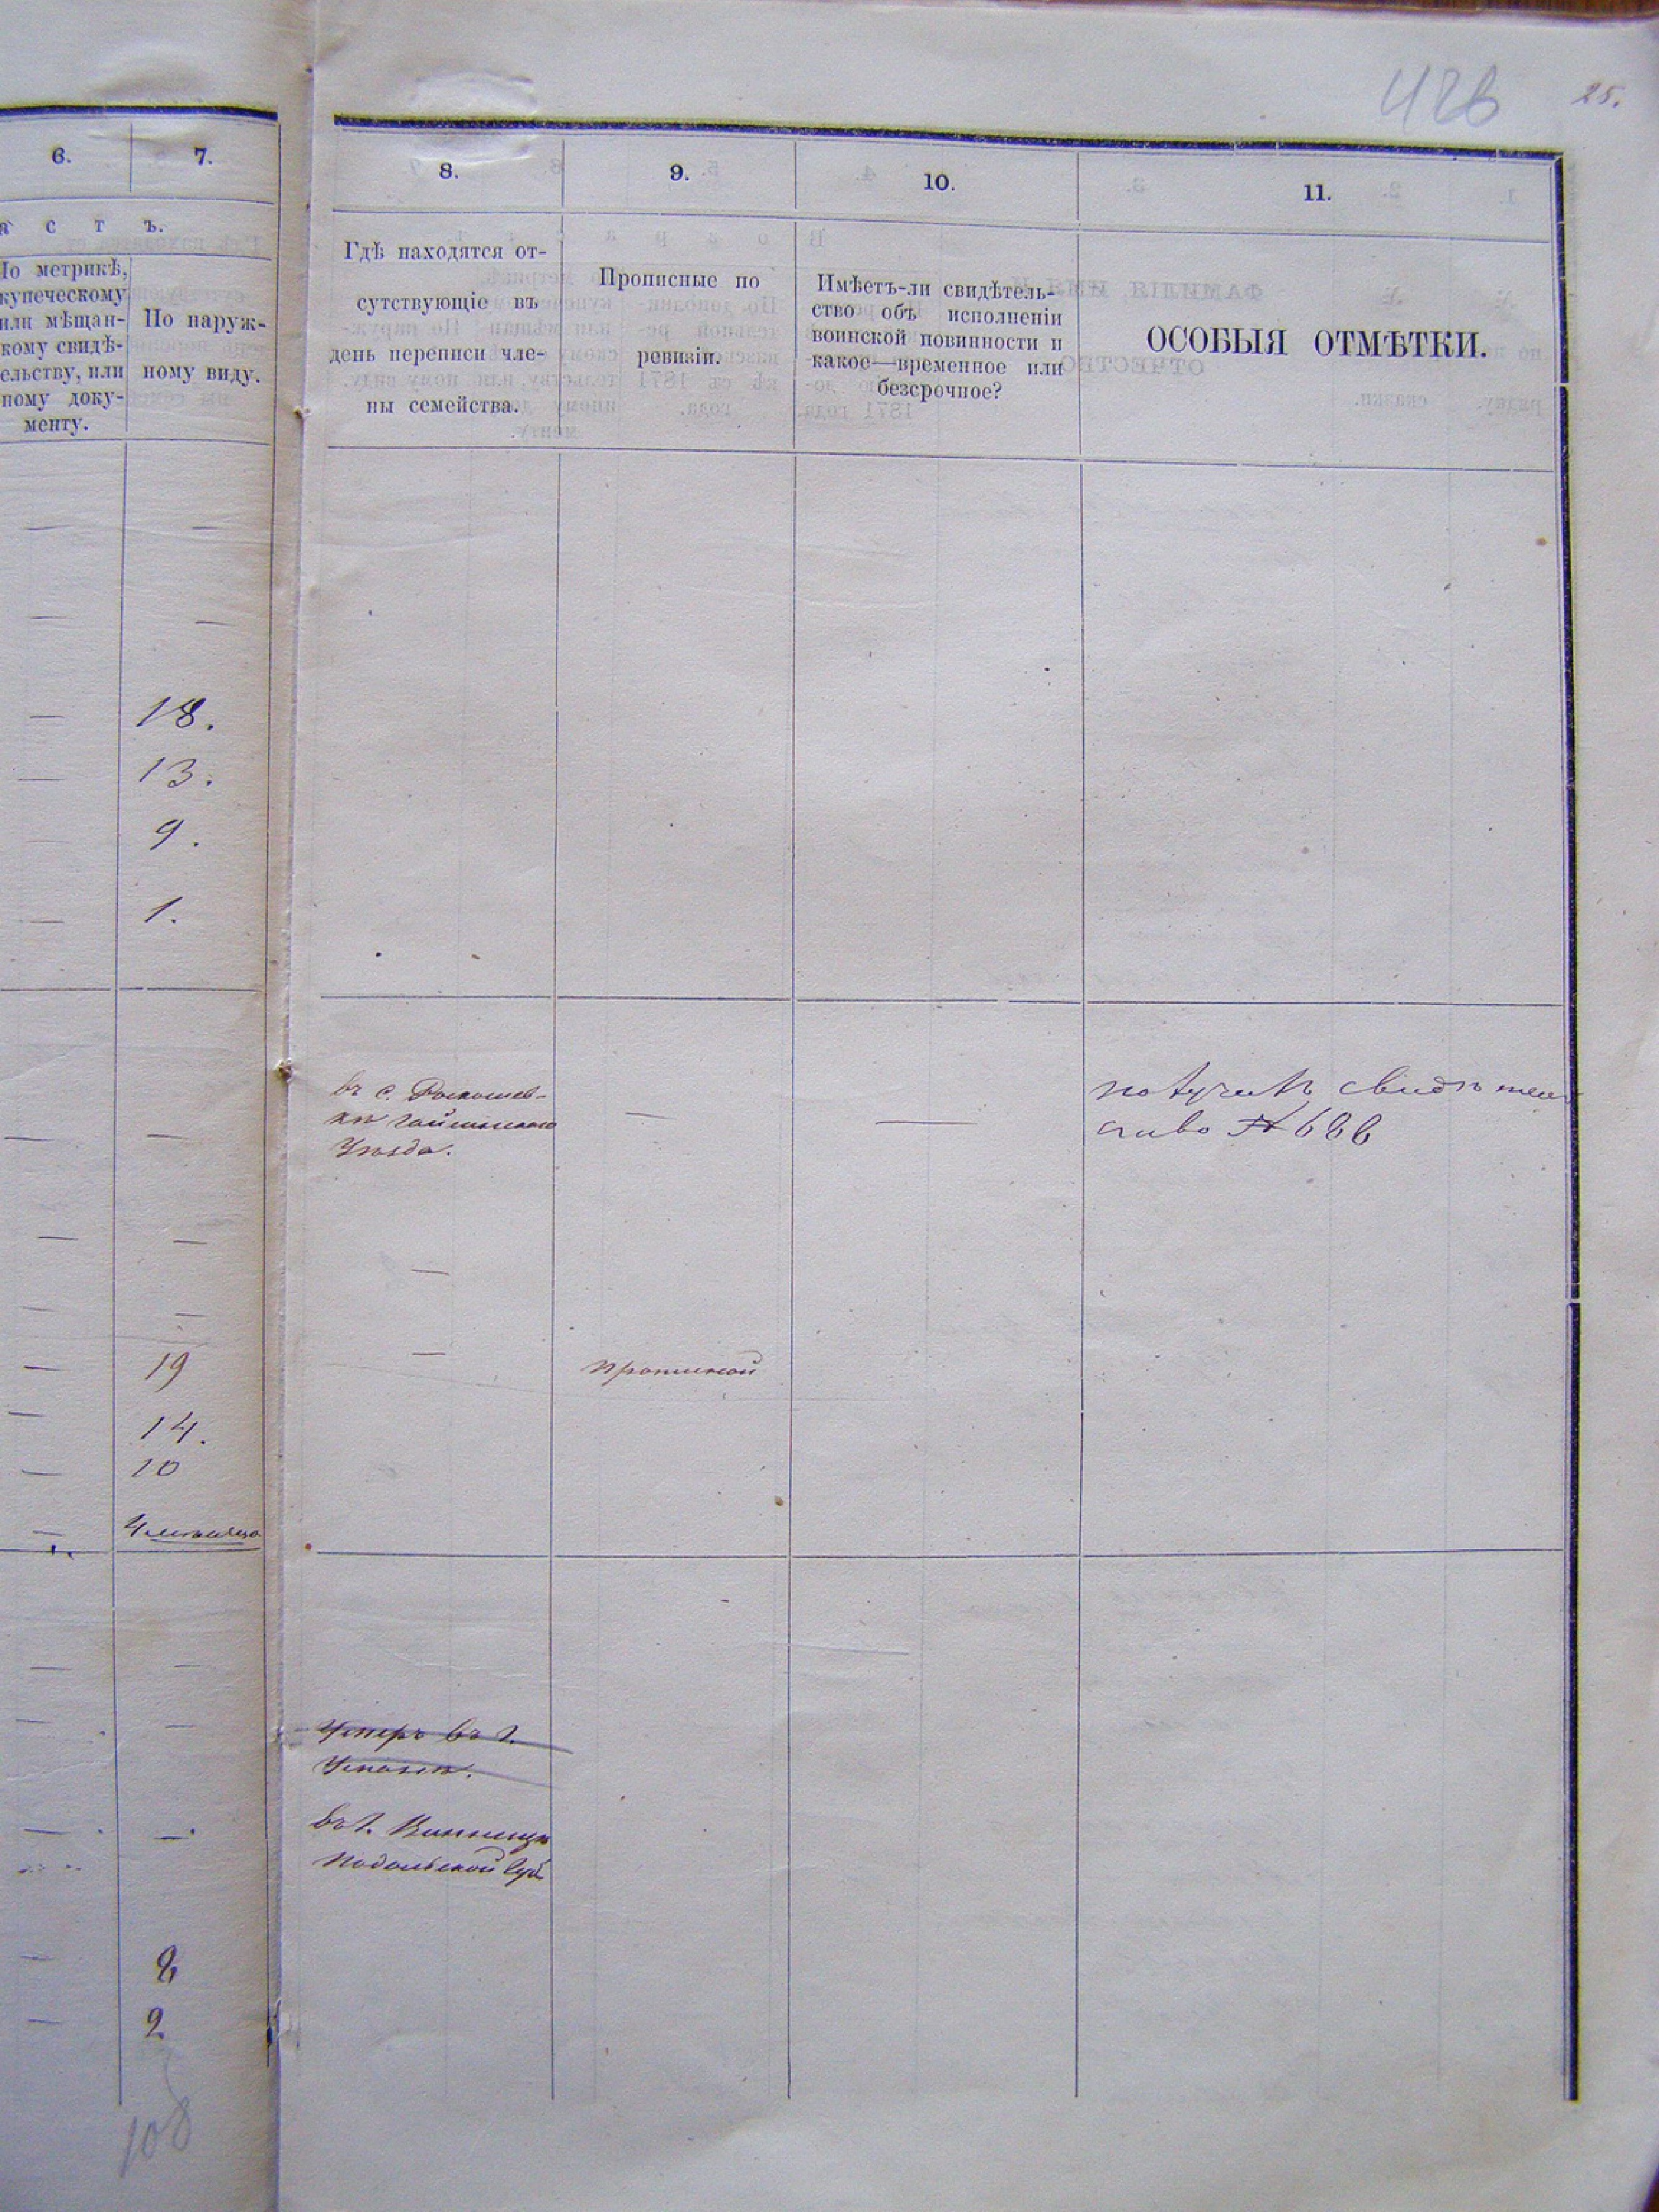 426 25.
6. 7.
а с т ъ.
По метрикѣ,
купеческому
или мѣщан-
кому свидѣ-
ельству, или
ному доку-
менту.
По наруж-
ному виду.
— —
— —
— 18.
— 13.
— 9.
— 1.
— —
— —
— —
— 19
— 14.
— 10
— 4 мѣсяца
— —
— —
— —
— 2
— 2
108
8. 9. 10. 11.
Гдѣ находятся от-
сутствующіе въ
день переписи чле-
ны семейства.
Прописные по
ревизіи.
Имѣетъ-ли свидѣтель-
ство объ исполненіи
воинской повинности и
какое—временное или
безсрочное?
ОСОБЫЯ ОТМѢТКИ.
въ с. Роскошев-
кѣ Гайсинскаго
Уѣзда.
— —
получилъ свидѣтель
ство № 686
—
— прописной
Умеръ въ г.
Умани.
въ г. Винницѣ
Подольской Губ